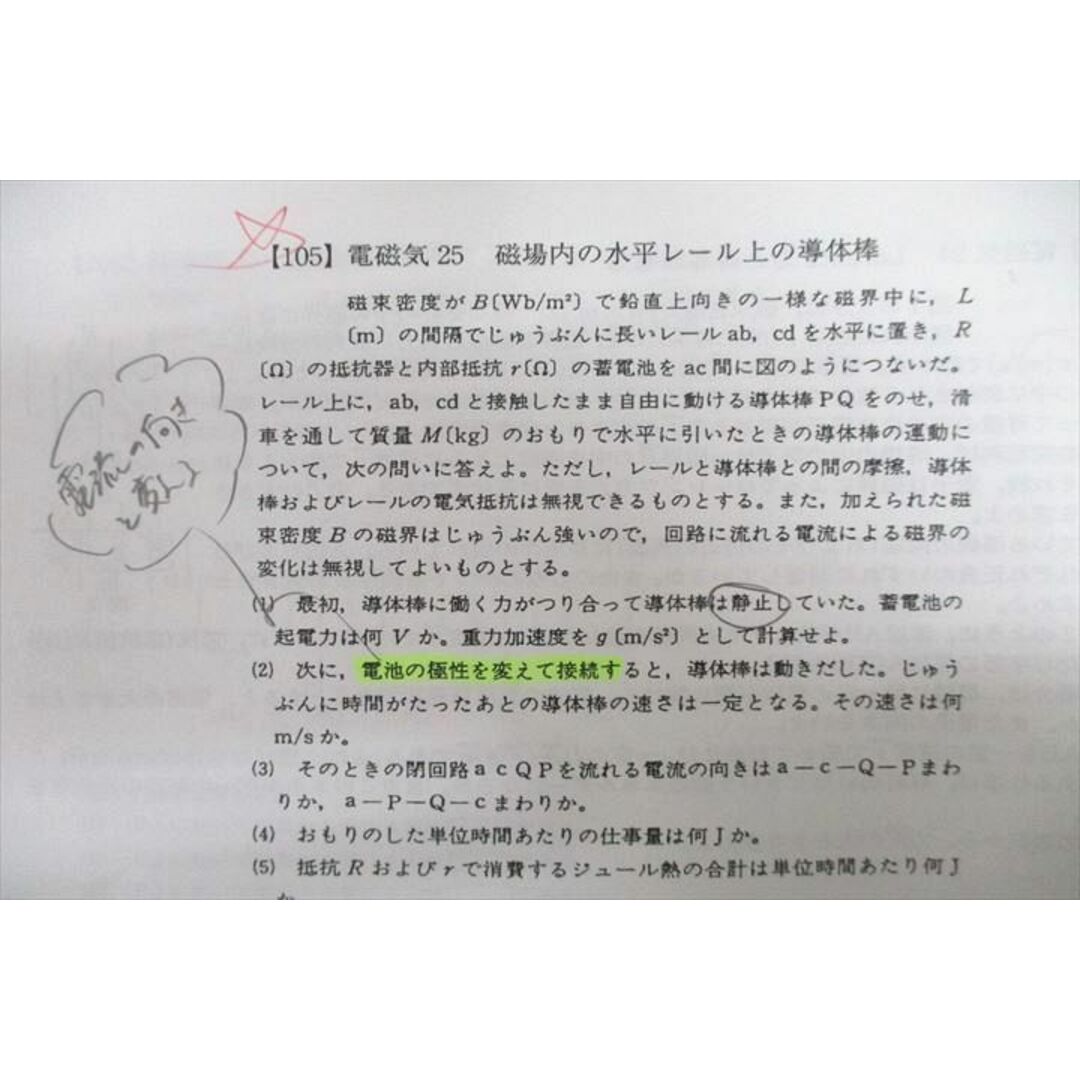 【105】電磁気25 磁場内の水平レール上の導体棒
磁束密度がB〔Wb/m²〕で鉛直上向きの一様な磁界中に，L
〔m〕の間隔でじゅうぶんに長いレールab，cdを水平に置き，R
〔Ω〕の抵抗器と内部抵抗r〔Ω〕の蓄電池をac間に図のようにつないだ。
レール上に，ab，cdと接触したまま自由に動ける導体棒PQをのせ，滑
車を通して質量M〔kg〕のおもりで水平に引いたときの導体棒の運動に
ついて，次の問いに答えよ。ただし，レールと導体棒との間の摩擦，導体
棒およびレールの電気抵抗は無視できるものとする。また，加えられた磁
束密度Bの磁界はじゅうぶん強いので，回路に流れる電流による磁界の
変化は無視してよいものとする。
電流の向き
と変んよ
(1) 最初，導体棒に働く力がつり合って導体棒は静止していた。蓄電池の
起電力は何Vか。重力加速度をg〔m/s²〕として計算せよ。
(2) 次に，電池の極性を変えて接続すると，導体棒は動きだした。じゅう
ぶんに時間がたったあとの導体棒の速さは一定となる。その速さは何
m/sか。
(3) そのときの閉回路acQPを流れる電流の向きはa－c－Q－Pまわ
りか，a－P－Q－cまわりか。
(4) おもりのした単位時間あたりの仕事量は何Jか。
(5) 抵抗Rおよびrで消費するジュール熱の合計は単位時間あたり何J